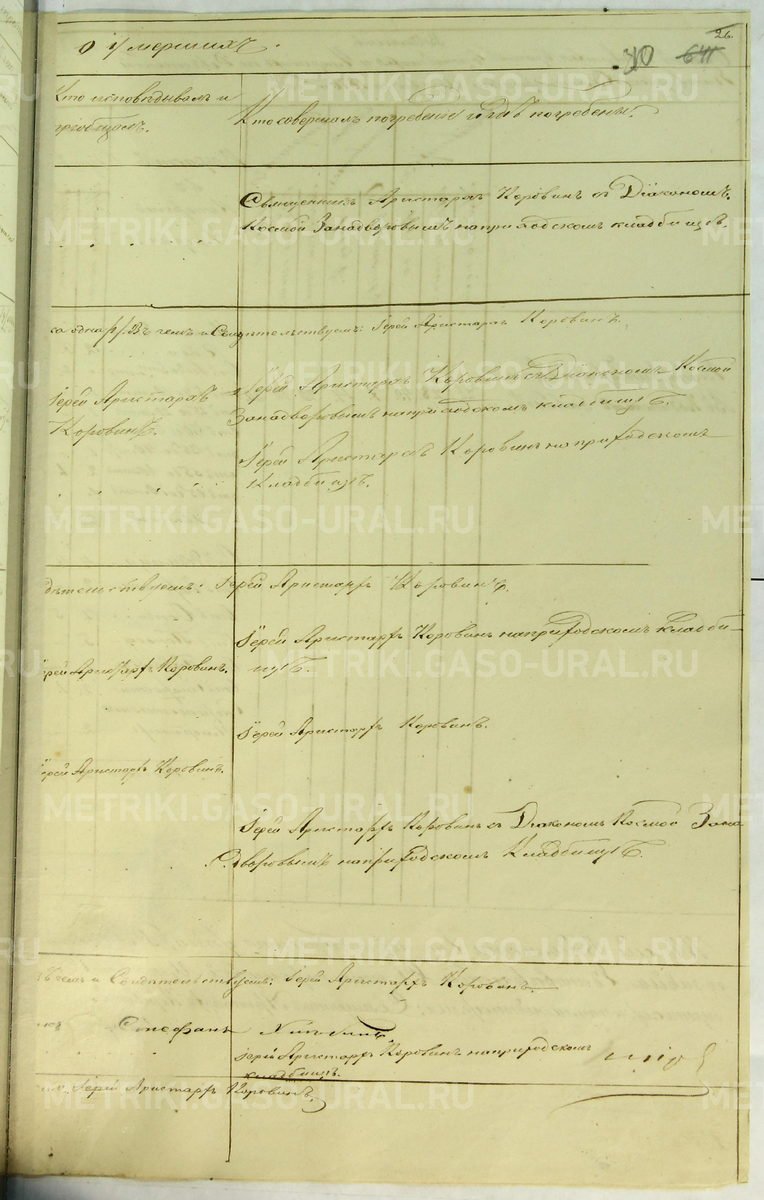 26.
о умершихъ.
30 641
Кто исповѣдывалъ и
пріобщалъ.
Кто совершалъ погребеніе и гдѣ погребены.
Священникъ Аристархъ Коровинъ съ Діакономъ
Космой Занадворовымъ на приходскомъ кладбищѣ.
въ чемъ и Свидѣтельствуемъ: Іерей Аристархъ Коровинъ.
Іерей Аристархъ
Коровинъ.
Іерей Аристархъ Коровинъ съ Діакономъ Космой
Занадворовымъ на приходскомъ кладбищѣ.
Іерей Аристархъ Коровинъ на приходскомъ
Кладбищѣ.
дѣтельствуемъ: Іерей Аристархъ Коровинъ.
Іерей Аристархъ Коровинъ на приходскомъ кладби-
щѣ.
Іерей Аристархъ Коровинъ.
Іерей Аристархъ Коровинъ.
Іерей Аристархъ Коровинъ.
Іерей Аристархъ Коровинъ съ Діакономъ Космой Зана
дворовымъ на приходскомъ Кладбищѣ.
въ чемъ и Свидѣтельствуемъ: Іерей Аристархъ Коровинъ.
Стефанъ
Іерей Аристархъ Коровинъ на приходскомъ
кладбищѣ.
Іерей Аристархъ Коровинъ.
METRIKI.GASO-URAL.RU